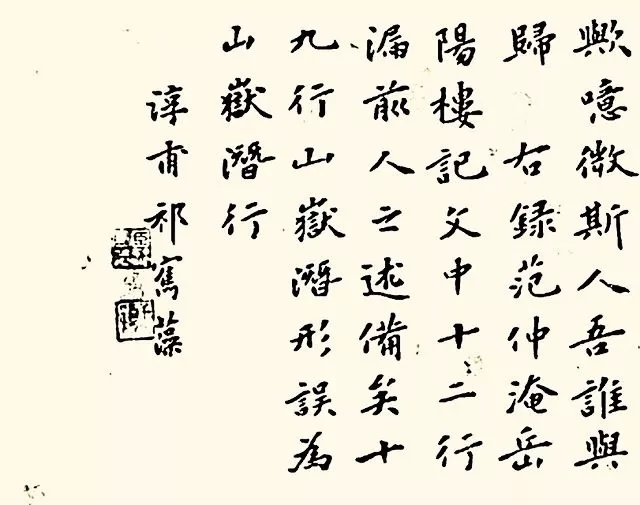 歟噫微斯人吾誰與
歸　右録范仲淹岳
陽樓記文中十二行
漏前人之述備矣十
九行山嶽潛形誤為
山嶽潛行
淳甫祁寯藻